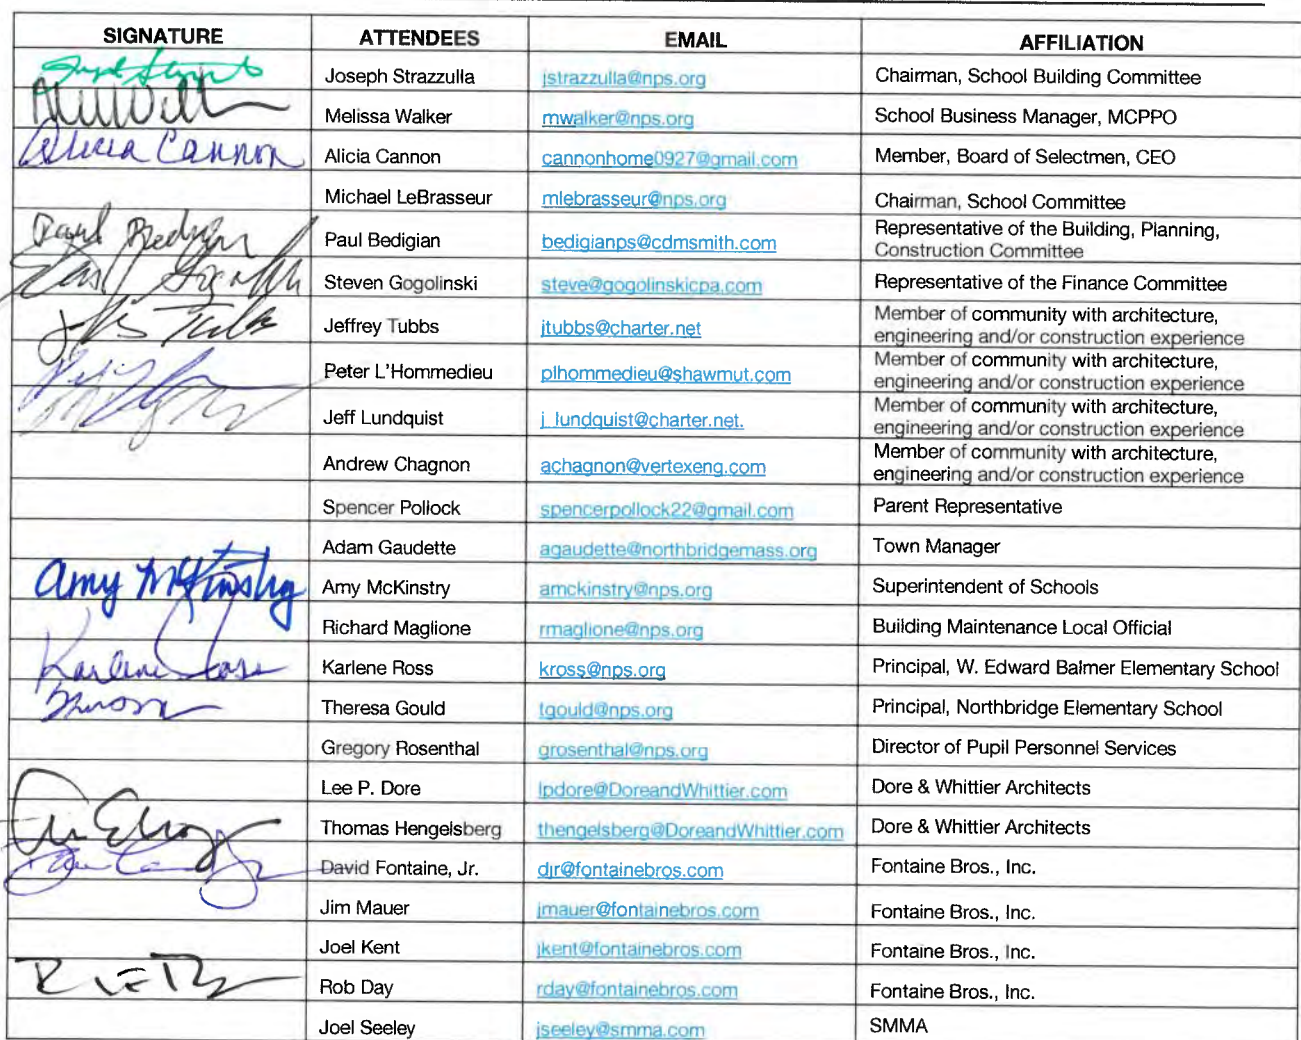 SIGNATURE ATTENDEES EMAIL AFFILIATION
Joseph Strazzulla jstrazzulla@nps.org Chairman, School Building Committee
Melissa Walker mwalker@nps.org School Business Manager, MCPPO
Alicia Cannon Alicia Cannon cannonhome0927@gmail.com Member, Board of Selectmen, CEO
Michael LeBrasseur mlebrasseur@nps.org Chairman, School Committee
Paul Bedigian Paul Bedigian bedigianps@cdmsmith.com Representative of the Building, Planning,
Construction Committee
Steven Gogolinski steve@gogolinskicpa.com Representative of the Finance Committee
Jeffrey Tubbs jtubbs@charter.net Member of community with architecture,
engineering and/or construction experience
Peter L'Hommedieu plhommedieu@shawmut.com Member of community with architecture,
engineering and/or construction experience
Jeff Lundquist j_lundquist@charter.net. Member of community with architecture,
engineering and/or construction experience
Andrew Chagnon achagnon@vertexeng.com Member of community with architecture,
engineering and/or construction experience
Spencer Pollock spencerpollock22@gmail.com Parent Representative
Adam Gaudette agaudette@northbridgemass.org Town Manager
Amy McKinstry Amy McKinstry amckinstry@nps.org Superintendent of Schools
Richard Maglione rmaglione@nps.org Building Maintenance Local Official
Karlene Ross Karlene Ross kross@nps.org Principal, W. Edward Balmer Elementary School
Theresa Gould tgould@nps.org Principal, Northbridge Elementary School
Gregory Rosenthal grosenthal@nps.org Director of Pupil Personnel Services
Lee P. Dore lpdore@DoreandWhittier.com Dore & Whittier Architects
Thomas Hengelsberg thengelsberg@DoreandWhittier.com Dore & Whittier Architects
David Fontaine, Jr. djr@fontainebros.com Fontaine Bros., Inc.
Jim Mauer jmauer@fontainebros.com Fontaine Bros., Inc.
Joel Kent jkent@fontainebros.com Fontaine Bros., Inc.
Rob Day rday@fontainebros.com Fontaine Bros., Inc.
Joel Seeley jseeley@smma.com SMMA